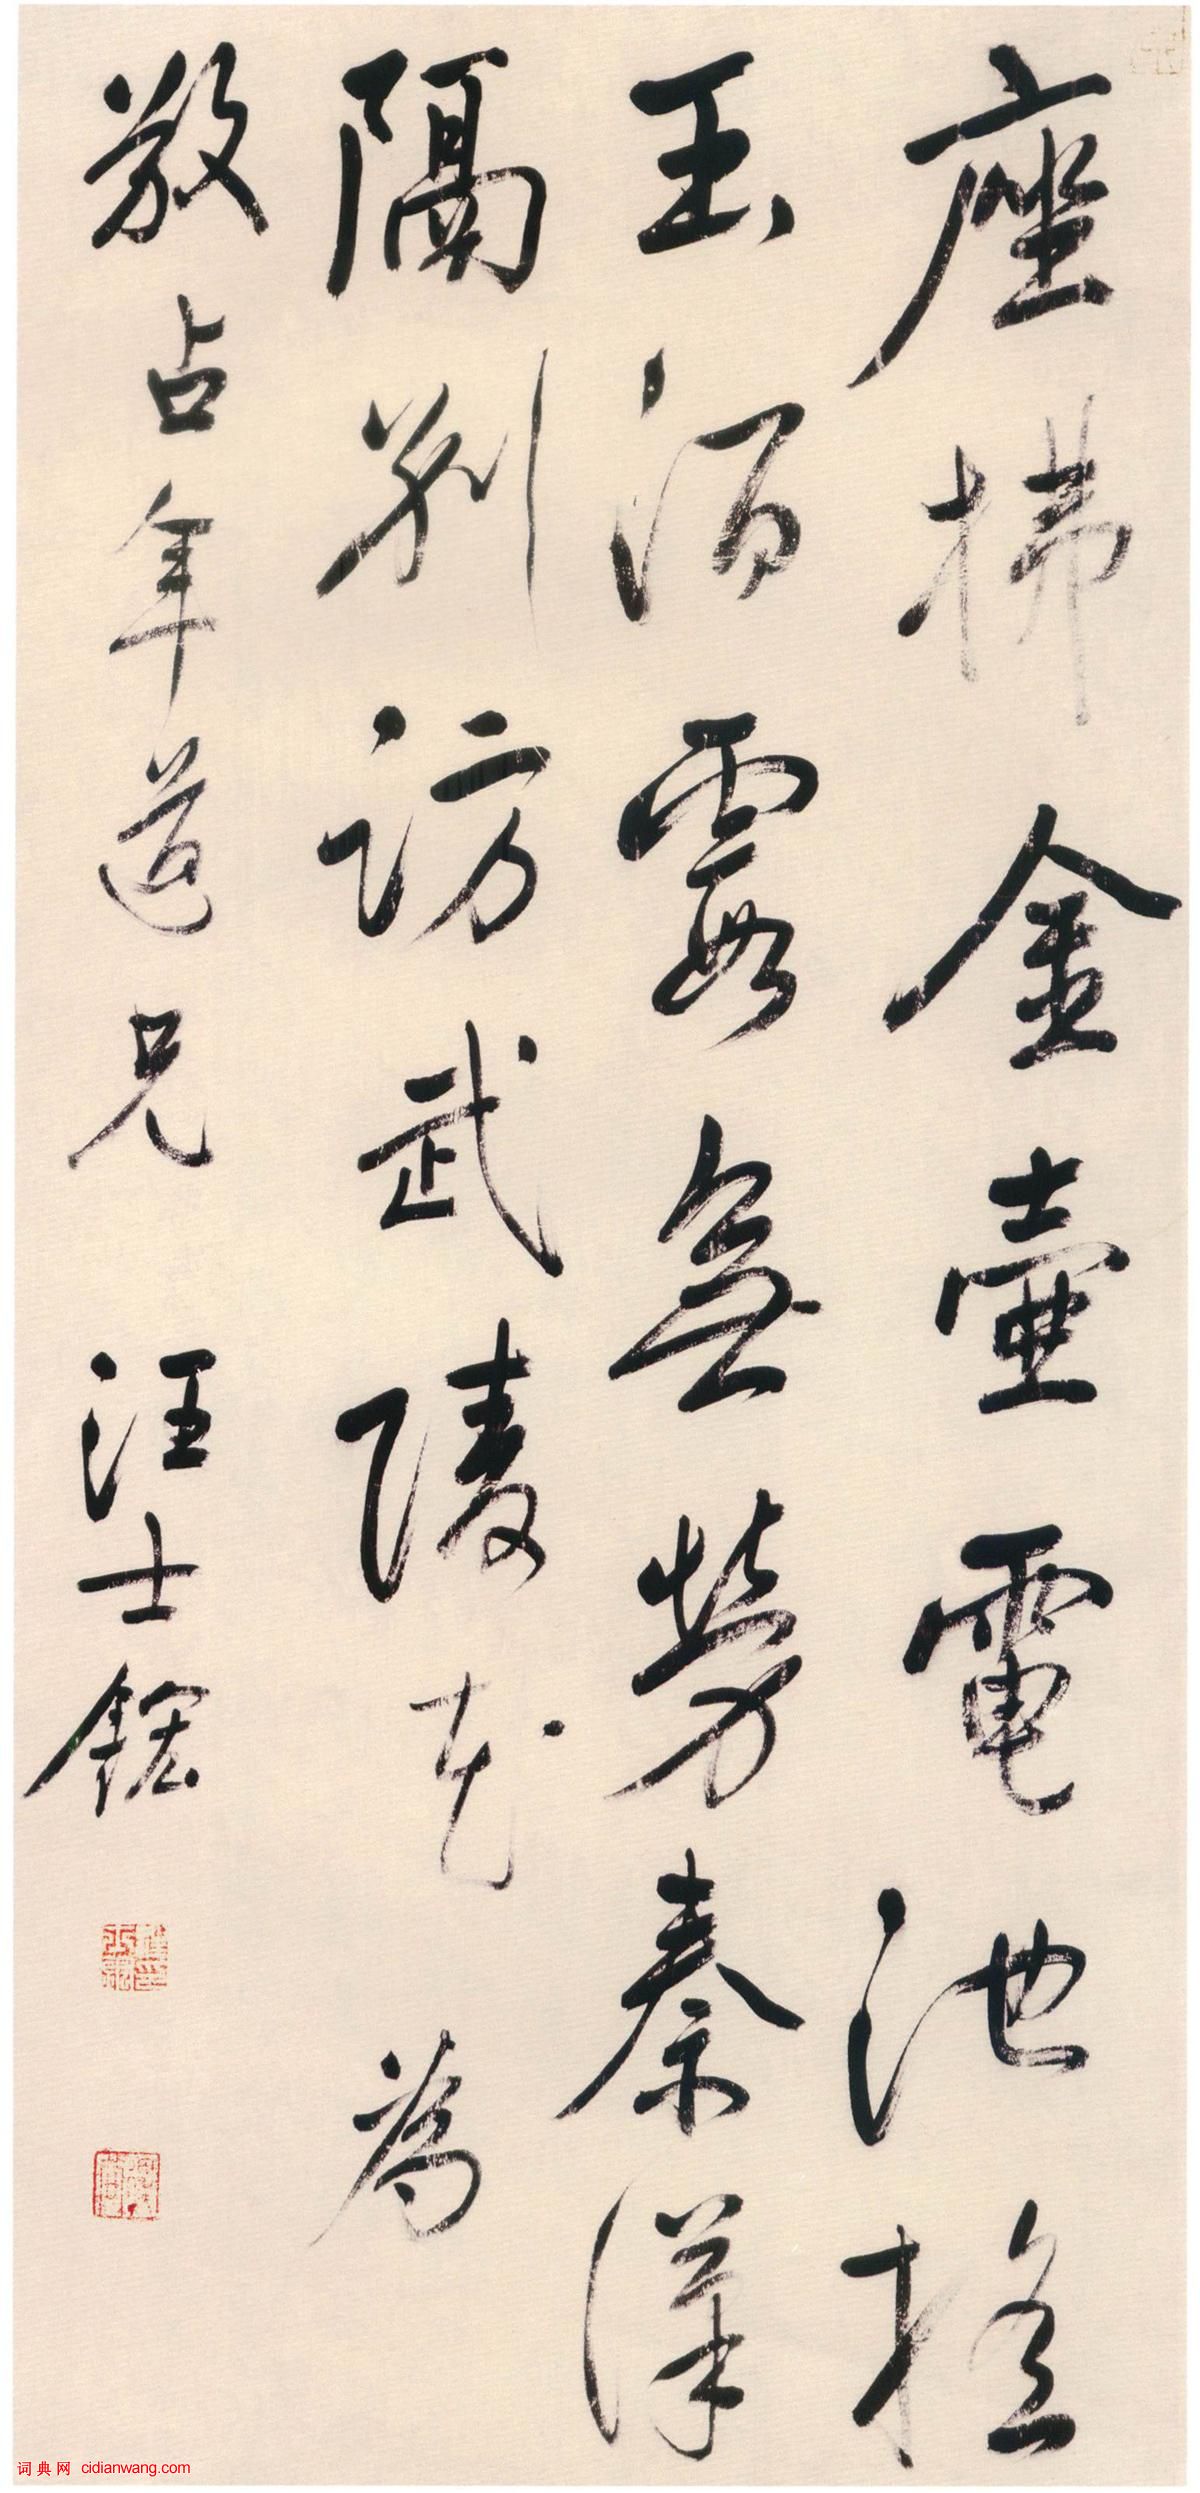 座拂金壶電池摇
玉酒霞無勞秦漢
隔别訪武陵花為
敬占年道兄 汪士鋐
词典网 cidianwang.com